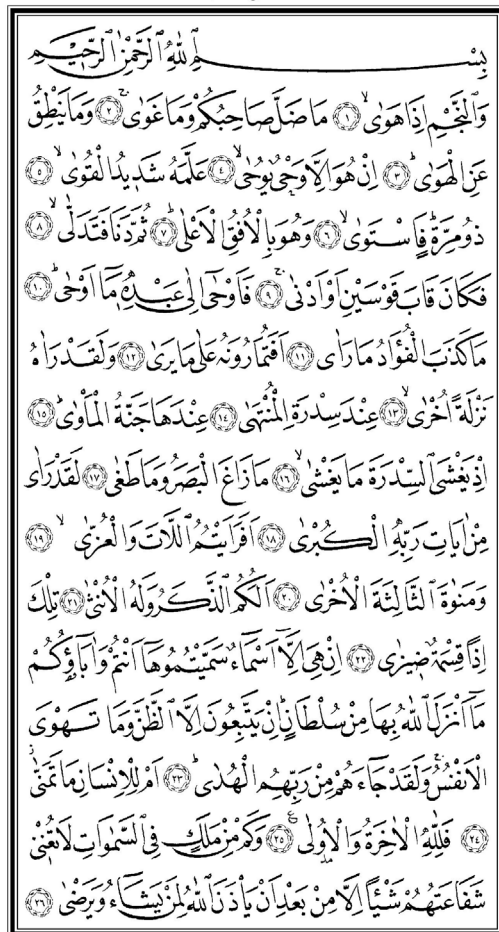 بِسْمِ اللهِ الرَّحْمٰنِ الرَّحِيمِ
وَالنَّجْمِ اِذَا هَوٰىۙ ﴿١﴾ مَا ضَلَّ صَاحِبُكُمْ وَمَا غَوٰىۚ ﴿٢﴾ وَمَا يَنْطِقُ
عَنِ الْهَوٰىۜ ﴿٣﴾ اِنْ هُوَ اِلَّا وَحْيٌ يُوحٰىۙ ﴿٤﴾ عَلَّمَهُ شَدِيدُ الْقُوٰىۙ ﴿٥﴾
ذُو مِرَّةٍۜ فَاسْتَوٰىۙ ﴿٦﴾ وَهُوَ بِالْاُفُقِ الْاَعْلٰىۜ ﴿٧﴾ ثُمَّ دَنَا فَتَدَلّٰىۙ ﴿٨﴾
فَكَانَ قَابَ قَوْسَيْنِ اَوْ اَدْنٰىۚ ﴿٩﴾ فَاَوْحٰٓى اِلٰى عَبْدِهٖ مَٓا اَوْحٰىۜ ﴿١٠﴾
مَا كَذَبَ الْفُؤَادُ مَا رَاٰى ﴿١١﴾ اَفَتُمَارُونَهُ عَلٰى مَا يَرٰى ﴿١٢﴾ وَلَقَدْ رَاٰهُ
نَزْلَةً اُخْرٰىۙ ﴿١٣﴾ عِنْدَ سِدْرَةِ الْمُنْتَهٰى ﴿١٤﴾ عِنْدَهَا جَنَّةُ الْمَأْوٰىۜ ﴿١٥﴾
اِذْ يَغْشَى السِّدْرَةَ مَا يَغْشٰىۙ ﴿١٦﴾ مَا زَاغَ الْبَصَرُ وَمَا طَغٰى ﴿١٧﴾ لَقَدْ رَاٰى
مِنْ اٰيَاتِ رَبِّهِ الْكُبْرٰى ﴿١٨﴾ اَفَرَاَيْتُمُ اللَّاتَ وَالْعُزّٰىۙ ﴿١٩﴾
وَمَنٰوةَ الثَّالِثَةَ الْاُخْرٰى ﴿٢٠﴾ اَلَكُمُ الذَّكَرُ وَلَهُ الْاُنْثٰى ﴿٢١﴾ تِلْكَ
اِذًا قِسْمَةٌ ضِيزٰى ﴿٢٢﴾ اِنْ هِيَ اِلَّٓا اَسْمَٓاءٌ سَمَّيْتُمُوهَٓا اَنْتُمْ وَاٰبَٓاؤُ۬كُمْ
مَٓا اَنْزَلَ اللهُ بِهَا مِنْ سُلْطَانٍۜ اِنْ يَتَّبِعُونَ اِلَّا الظَّنَّ وَمَا تَهْوَى
الْاَنْفُسُۚ وَلَقَدْ جَٓاءَهُمْ مِنْ رَبِّهِمُ الْهُدٰىۜ ﴿٢٣﴾ اَمْ لِلْاِنْسَانِ مَا تَمَنّٰىۘ
﴿٢٤﴾ فَلِلّٰهِ الْاٰخِرَةُ وَالْاُو۫لٰى۟ ﴿٢٥﴾ وَكَمْ مِنْ مَلَكٍ فِي السَّمٰوَاتِ لَا تُغْنٖي
شَفَاعَتُهُمْ شَيْـًٔا اِلَّا مِنْ بَعْدِ اَنْ يَأْذَنَ اللهُ لِمَنْ يَشَٓاءُ وَيَرْضٰى ﴿٢٦﴾